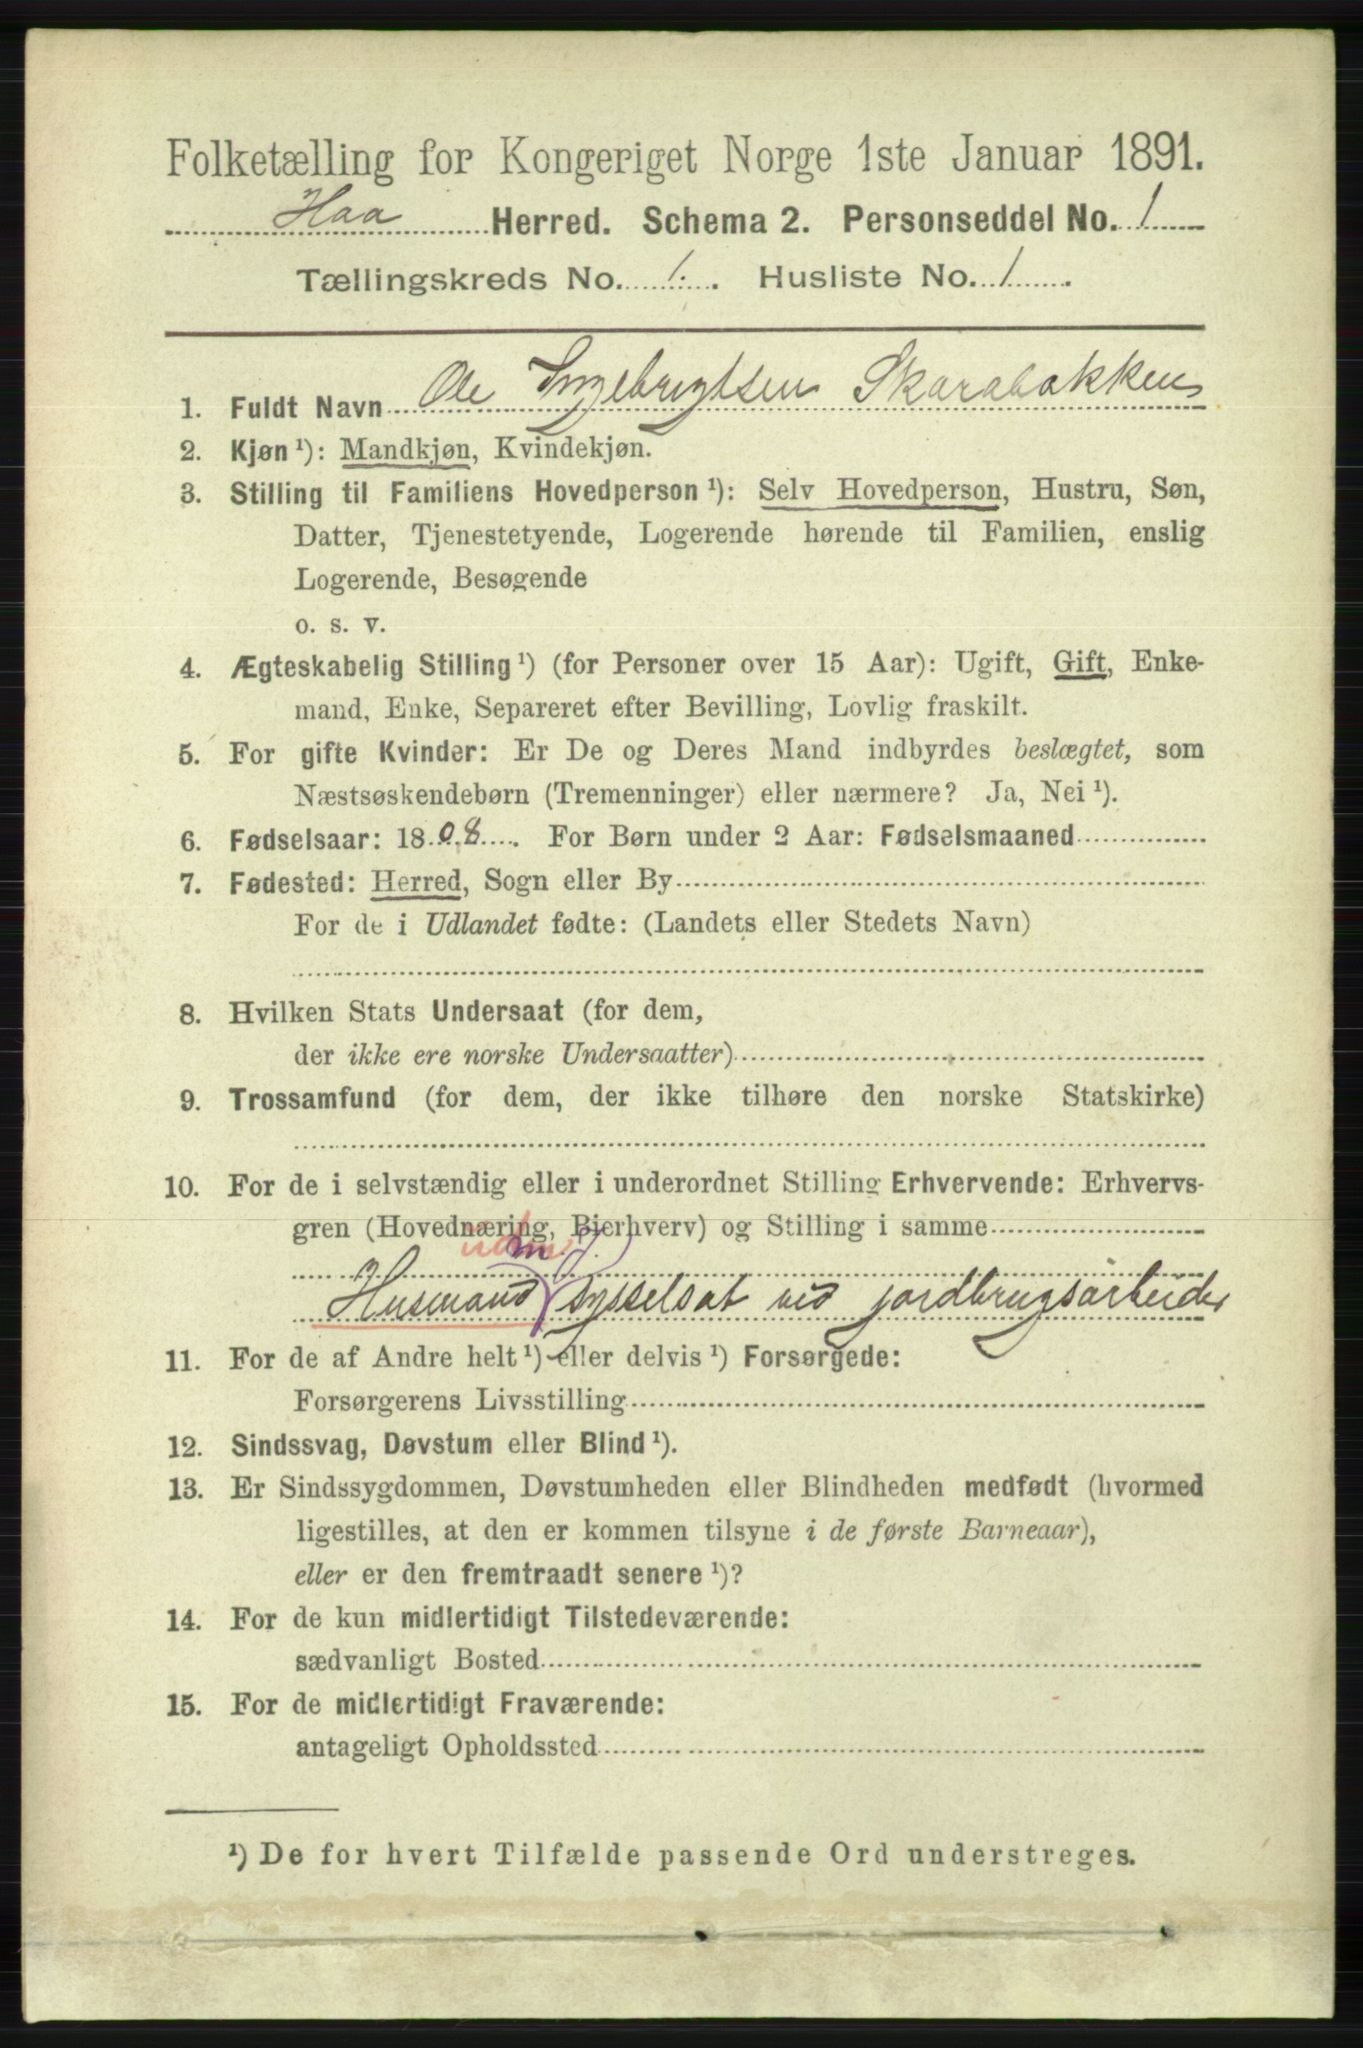 Folketælling for Kongeriget Norge 1ste Januar 1891.
Haa Herred. Schema 2. Personseddel No. 1
Tællingskreds No. 1. Husliste No. 1.
1. Fuldt Navn Ole Ingebrigtsen Skarabakken
2. Kjøn ¹): Mandkjøn, Kvindekjøn.
3. Stilling til Familiens Hovedperson ¹): Selv Hovedperson, Hustru, Søn,
Datter, Tjenestetyende, Logerende hørende til Familien, enslig
Logerende, Besøgende
o. s. v.
4. Ægteskabelig Stilling ¹) (for Personer over 15 Aar): Ugift, Gift, Enke-
mand, Enke, Separeret efter Bevilling, Lovlig fraskilt.
5. For gifte Kvinder: Er De og Deres Mand indbyrdes beslægtet, som
Næstsøskendebørn (Tremenninger) eller nærmere? Ja, Nei ¹).
6. Fødselsaar: 1808. For Børn under 2 Aar: Fødselsmaaned
7. Fødested: Herred, Sogn eller By
For de i Udlandet fødte: (Landets eller Stedets Navn)
8. Hvilken Stats Undersaat (for dem,
der ikke ere norske Undersaatter)
9. Trossamfund (for dem, der ikke tilhøre den norske Statskirke)
10. For de i selvstændig eller i underordnet Stilling Erhvervende: Erhvervs-
gren (Hovednæring, Bierhverv) og Stilling i samme
m. J.
Husmand sysselsat ved jordbrugsarbeider
11. For de af Andre helt ¹) eller delvis ¹) Forsørgede:
Forsørgerens Livsstilling
12. Sindssvag, Døvstum eller Blind ¹).
13. Er Sindssygdommen, Døvstumheden eller Blindheden medfødt (hvormed
ligestilles, at den er kommen tilsyne i de første Barneaar),
eller er den fremtraadt senere ¹)?
14. For de kun midlertidigt Tilstedeværende:
sædvanligt Bosted
15. For de midlertidigt Fraværende:
antageligt Opholdssted
¹) De for hvert Tilfælde passende Ord understreges.